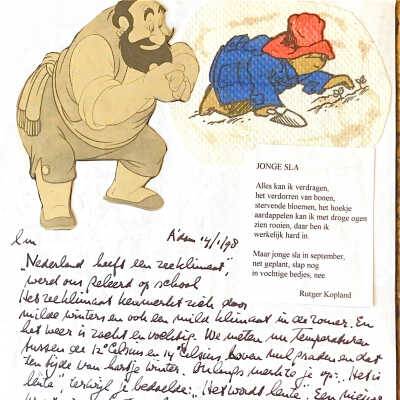 JONGE SLA
Alles kan ik verdragen,
het verdorren van bonen,
stervende bloemen, het hoekje
aardappelen kan ik met droge ogen
zien rooien, daar ben ik
werkelijk hard in.
Maar jonge sla in september,
net geplant, slap nog
in vochtige bedjes, nee.
Rutger Kopland
A'dam 14/1/98
"Nederland heeft een zeeklimaat",
werd ons geleerd op school
Het zeeklimaat kenmerkt zich door
milde winters en ook een mild klimaat in de zomer. En
het weer is zacht en vochtig. We meten nu temperaturen
tussen de 12° Celsius en 14° Celsius boven nul graden en dat
ten tijde van hartje winter. Onlangs merkte je op: "Het is
lente", terwijl je bedoelde: "Het wordt lente". Een nieuwe